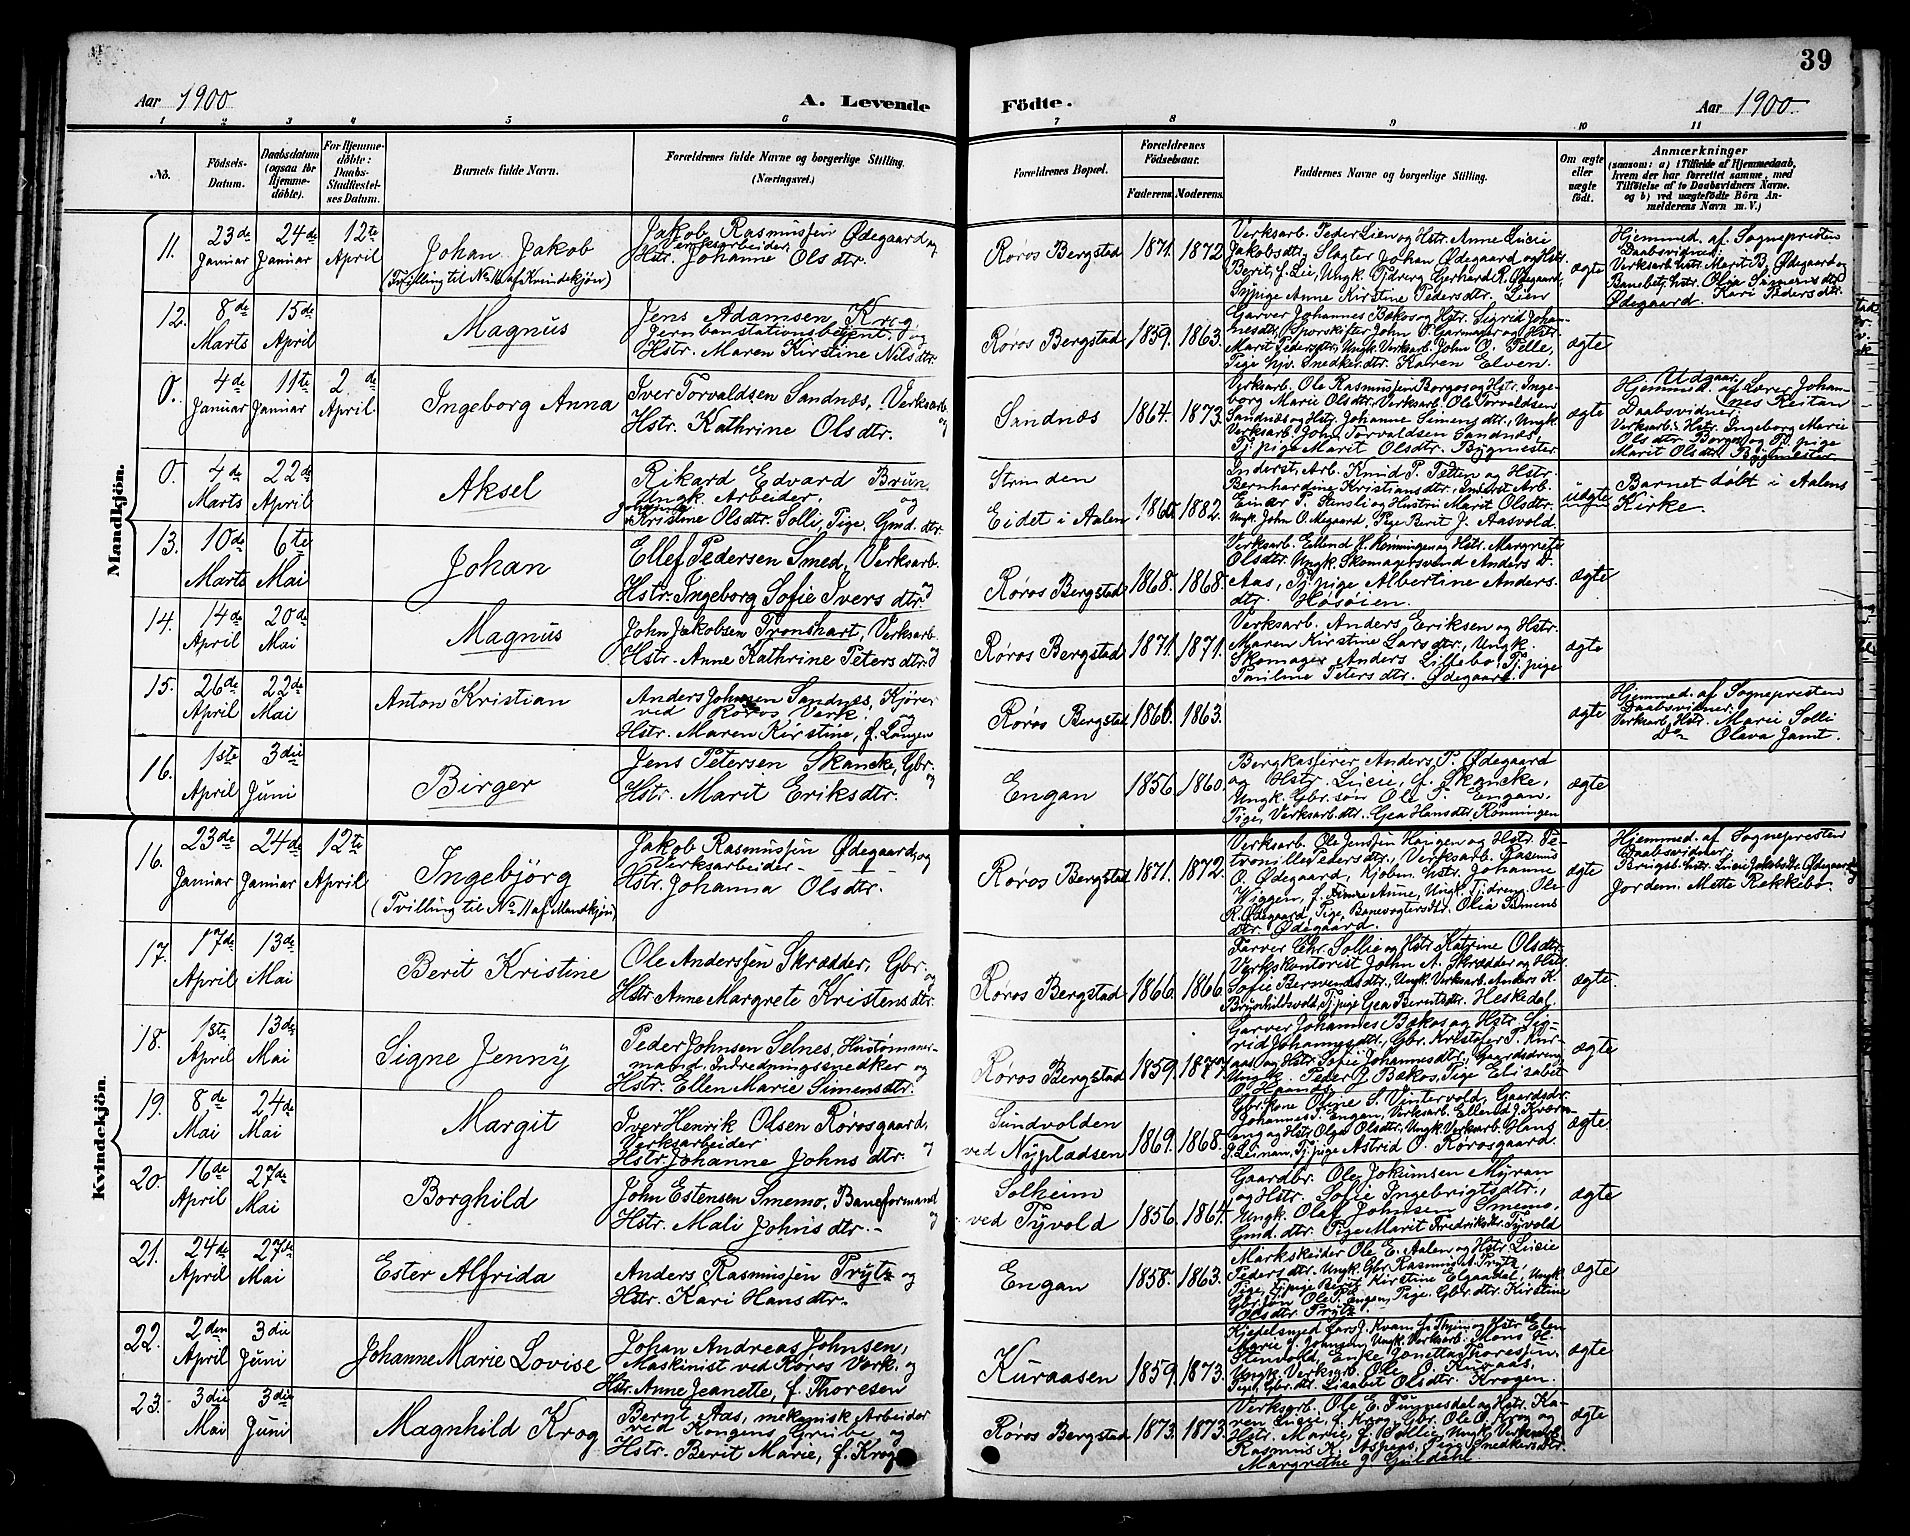 39
Aar 1900
A. Levende
Födte.
Aar 1900.
1 2 3 4 5 6 7 8 9 10 11
No.
Födsels-Datum.
Daabsdatum (ogsaa for Hjemmedöbte).
For Hjemmedöbte: Daabs-Stadfæstelses Datum.
Barnets fulde Navn.
Forældrenes fulde Navne og borgerlige Stilling.
(Næringsvei.)
Forældrenes Bopæl.
Forældrenes Födselsaar.
Faderens. Moderens.
Faddernes Navne og borgerlige Stilling.
Om ægte eller uægte födt.
Anmærkninger
(saasom: a) i Tilfælde af Hjemmedaab, hvem der har forrettet samme, med Tilföielse af to Daabsvidners Navne. og b) ved uægtefödte Börn Anmelderens Navn m. V.)
Mandkjön.
11. 23de Januar 24de Januar 12te April
Johan Jakob
(Tvilling til No 16 af Kvindekjön)
Jakob Rasmussen Ødegaard og
Verksarbeider
Hstr. Johanne Olsdtr.
Røros Bergstad 1871. 1872
Verksarb. Peder Lien og Hstr. Anne Lucie
Jakobsdtr, Slagter Johan Ødegaard og Hstr.
Berit, f. Lie, Ungk. Gerhard R. Ødegaard,
Sypige Anne Kirstine Pedersdtr. Lien
ægte
Hjemmed. af Sognepresten
Daabsvidner:
Verksarb. Hstr. Marit B. Ødegaard og
Banebetj. hstr. Olia Simensdtr
Ødegaard. Kari Pedersdtr.
12. 8de Marts 15de April
Magnus
Jens Adamsen Krog
Jernbanestationsbetjent, og
Hstr. Maren Kirstine Nilsdtr.
Røros Bergstad 1859. 1863.
Garver Johannes Bakos og Hstr. Sigrid Johan-
nesdtr, Sporskifter John O. Garmager og Hstr.
Marit Pedersdtr, Ungk. Verksarb. John O. Felle,
Pige hjv. Snedkerdtr. Katren Elven.
ægte
0. 4de Januar 11te Januar 2de April
Ingeborg Anna
Iver Torvaldsen Sandnæs, Verksarb. og
Hstr. Kathrine Olsdtr.
Sandnæs 1864. 1873.
Verksarb. Ole Rasmussen Borgos og Hstr. Inge-
borg Marie Olsdtr, Verksarb. Ole Torvaldsen
Sandnæs og Hstr. Johanne Simensdtr., Ungk.
Verksarb. John Torvaldsen Sandnæs,
Tj. pige Marit Olsdtr. Bygmester
ægte
Udgaar
Hjemmed. af Lærer Johan-
nes Reitan
Daabsvidner
Verksarb. Hstr. Ingeborg Marie
Olsdtr. Borgos og Tj. pige
Marit Olsdtr. Bygmester
0. 4de Marts 22de April
Aksel
Rikard Edvard Brun,
Ungk. Arbeider. og
Kristine Olsdtr. Solli, Pige, Gmd. dtr.
Strinden
Eidet i Aalen 1882.
Inderst, Arb. Knud P. Tetten og Hstr.
Bernhardine Kristiansdtr., Inderst Arb.
Einar P. Rensli og Hustru Marit Olsdtr.
Ungk. John O. Møgaard, Pige Berit J. Aasvold.
uægte
Barnet döbt i Aalens
Kirke
13. 10de Marts 6te Mai
Johan
Ellef Pedersen Smed, Verksarb. og
Hstr. Ingeborg Sofie Iversdtr.
Røros Bergstad 1868. 1868.
Verksarb. Ellend H. Rönningen og Hstr. Margrete
Olsdtr. Ungk. Skomagersvend Anders O.
Aas, Tj. pige Albertine Anders-
dtr. Høsøien.
ægte
14. 14de April 20de Mai
Magnus
John Jakobsen Tronshart, Verksarb. og
Hstr. Anne Kathrine Petersdtr.
Røros Bergstad 1871. 1871.
Verksarb. Anders Eriksen og Hstr.
Maren Kirstine Larsdtr, Ungk.
Skomager Anders Lillebo, Tj. pige
Pauline Petersdtr. Ødegaard.
ægte
15. 26de April 22de Mai
Anton Kristian
Anders Johnsen Sandnes, Kjører
ved Røros Verk og
Hstr. Maren Kirstine, f. Langen
Røros Bergstad 1866. 1863.
ægte
Hjemmed. af Sognepresten
Daabsvidner:
Verksarb. Hstr. Marie Solli
Do Olava Jamt.
16. 1ste April 3die Juni
Birger
Jens Petersen Skancke, Gbr. og
Hstr. Marit Eriksdtr.
Engan 1856. 1860.
Bergkasserer Anders P. Ødegaard
og Hstr. Lucie, f. Skancke,
Ungk. Gbr. søn Ole P. Engan,
Pige, Verksarb. dtr. Gea Hansdtr. Rönningen
ægte
Kvindekjön.
16. 23de Januar 24de Januar 12te April
Ingebjörg
(Tvilling til No 11 af Mandkjön)
Jakob Rasmussen Ødegaard, og
Verksarbeider
Hstr. Johanna Olsdtr.
Røros Bergstad 1871. 1872.
Verksarb. Ole Jensen Haigen og Hstr. Pe-
tronille Pedersdtr., Verksarb. Rasmus
O. Ødegaard, Kjøbm. Hstr. Johanne
Wiggen, f. Aune, Ungk. Tjdreng Ole
R. Ødegaard, Pige, Banevogtersdtr. Olia Simens
dtr. Ødegaard.
ægte
Hjemmed. af Sognepresten
Daabsvidner:
Hstr. Lucie Jakobsdtr Ødegaard og
Jordem. Mette Rekkebo.
17. 17de April 13de Mai
Berit Kristine
Ole Andersen Skrædder, Gbr. og
Hstr. Anne Margrete Kristensdtr.
Røros Bergstad 1866. 1866.
Farver Chr. Sollie og Hstr. Katrine Olsdtr.
Verkskontorist John A. Skrædder og Hstr.
Sofie Bersvendsdtr., Ungk. Verksarb. Anders K.
Brynhildsvold, Tj. pige Gea Berntsdtr. Heskedal.
ægte.
18. 1ste April 13de Mai
Signe Jenny
Peder Johnsen Selnes, Hustømmer-
mand, Indredningssnedker og
Hstr. Ellen Marie Simensdtr.
Røros Bergstad 1859. 1877.
Garver Johannes Bakos og Hstr. Sig-
rid Johannesdtr., Gbr. Kristofer P. Kur-
aas og Hstr. Sofie Johannesdtr., Gaardsdreng
Ungk. Peder J. Bakos, Pige Elisabet
O. Haanes.
ægte
19. 8de Mai 24de Mai
Margit
Iver Henrik Olsen Rørosgaard,
Verksarbeider og
Hstr. Johanne Johnsdtr.
Sundvolden
ved Nypladsen 1869. 1868.
Gbr. kone Oline S. Vintervold, Gaardsdr.
Johannes P. Engan, Verksarb. Ellend J. Kværn-
eng og Hstr. Olga Olsdtr., Ungk. Verksarb. Hans
J. Leinan, Tj. pige Astrid O. Rørosgaard.
ægte
20. 16de April 27de Mai
Borghild
John Estensen Smemo, Baneformand og
Hstr. Mali Johnsdtr.
Solheim
ved Tyvold 1856. 1864.
Gaardbr. Ole Jokumsen Myran
og Hstr. Sofie Ingebrigtsdtr.,
Ungk. Olaf Johnsen Smemo,
Gmd. dtr. Pige Marit Fredriksdtr. Tyvold
ægte
21. 24de April 27de Mai
Ester Alfrida
Anders Rasmussen Trytz og
Hstr. Kari Hansdtr.
Engan 1858. 1863.
Markskeider Ole E. Aalen og Hstr. Lucie
Pedersdtr. Ungk. Gbr. Rasmus A. Trytz,
Pige, Tj. pige Berit Kirstine Elgaadal, Ungk
Gbr. søn Ole P. Engen, Pige, Gbr. dtr. Kirstine
Olsdtr. Trytz.
ægte
22. 2den April 3die Juni
Johanne Marie Lovise
Johan Andreas Johnsen,
Maskinist ved Röros Verk, og
Hstr. Anne Jeanette, f. Thoresen
Kuraasen 1859. 1873.
Kjedelsmed Lars J. Kvam, Thjem og Hstr. Elen
Marie J. Johansen, Ungk. Verksarb. Mons H.
Stenvold, Enke Janetta Thoresen,
Ungk. Verksarb. Ole O. Kuraas,
Pige, Gbr. dtr. Lisabet Olsdtr. Krogen.
ægte
23. 3die Mai 3die Juni
Magnhild Krog
Bernt Aas, mekanisk Arbeider
ved Kongens Grube og
Hstr. Berit Marie, f. Krog
Røros Bergstad 1873. 1873.
Verksarb. Ole E. Funnesdal og Hstr. Ka-
ren Lucie, f. Krog, Gbr. Ole O. Krog og
Hstr. Marie, f. Sollie, Ungk. Verksarb.
Rasmus K. Aspaas, Pige Snedkersdtr.
Margrethe J. Guldahl.
ægte